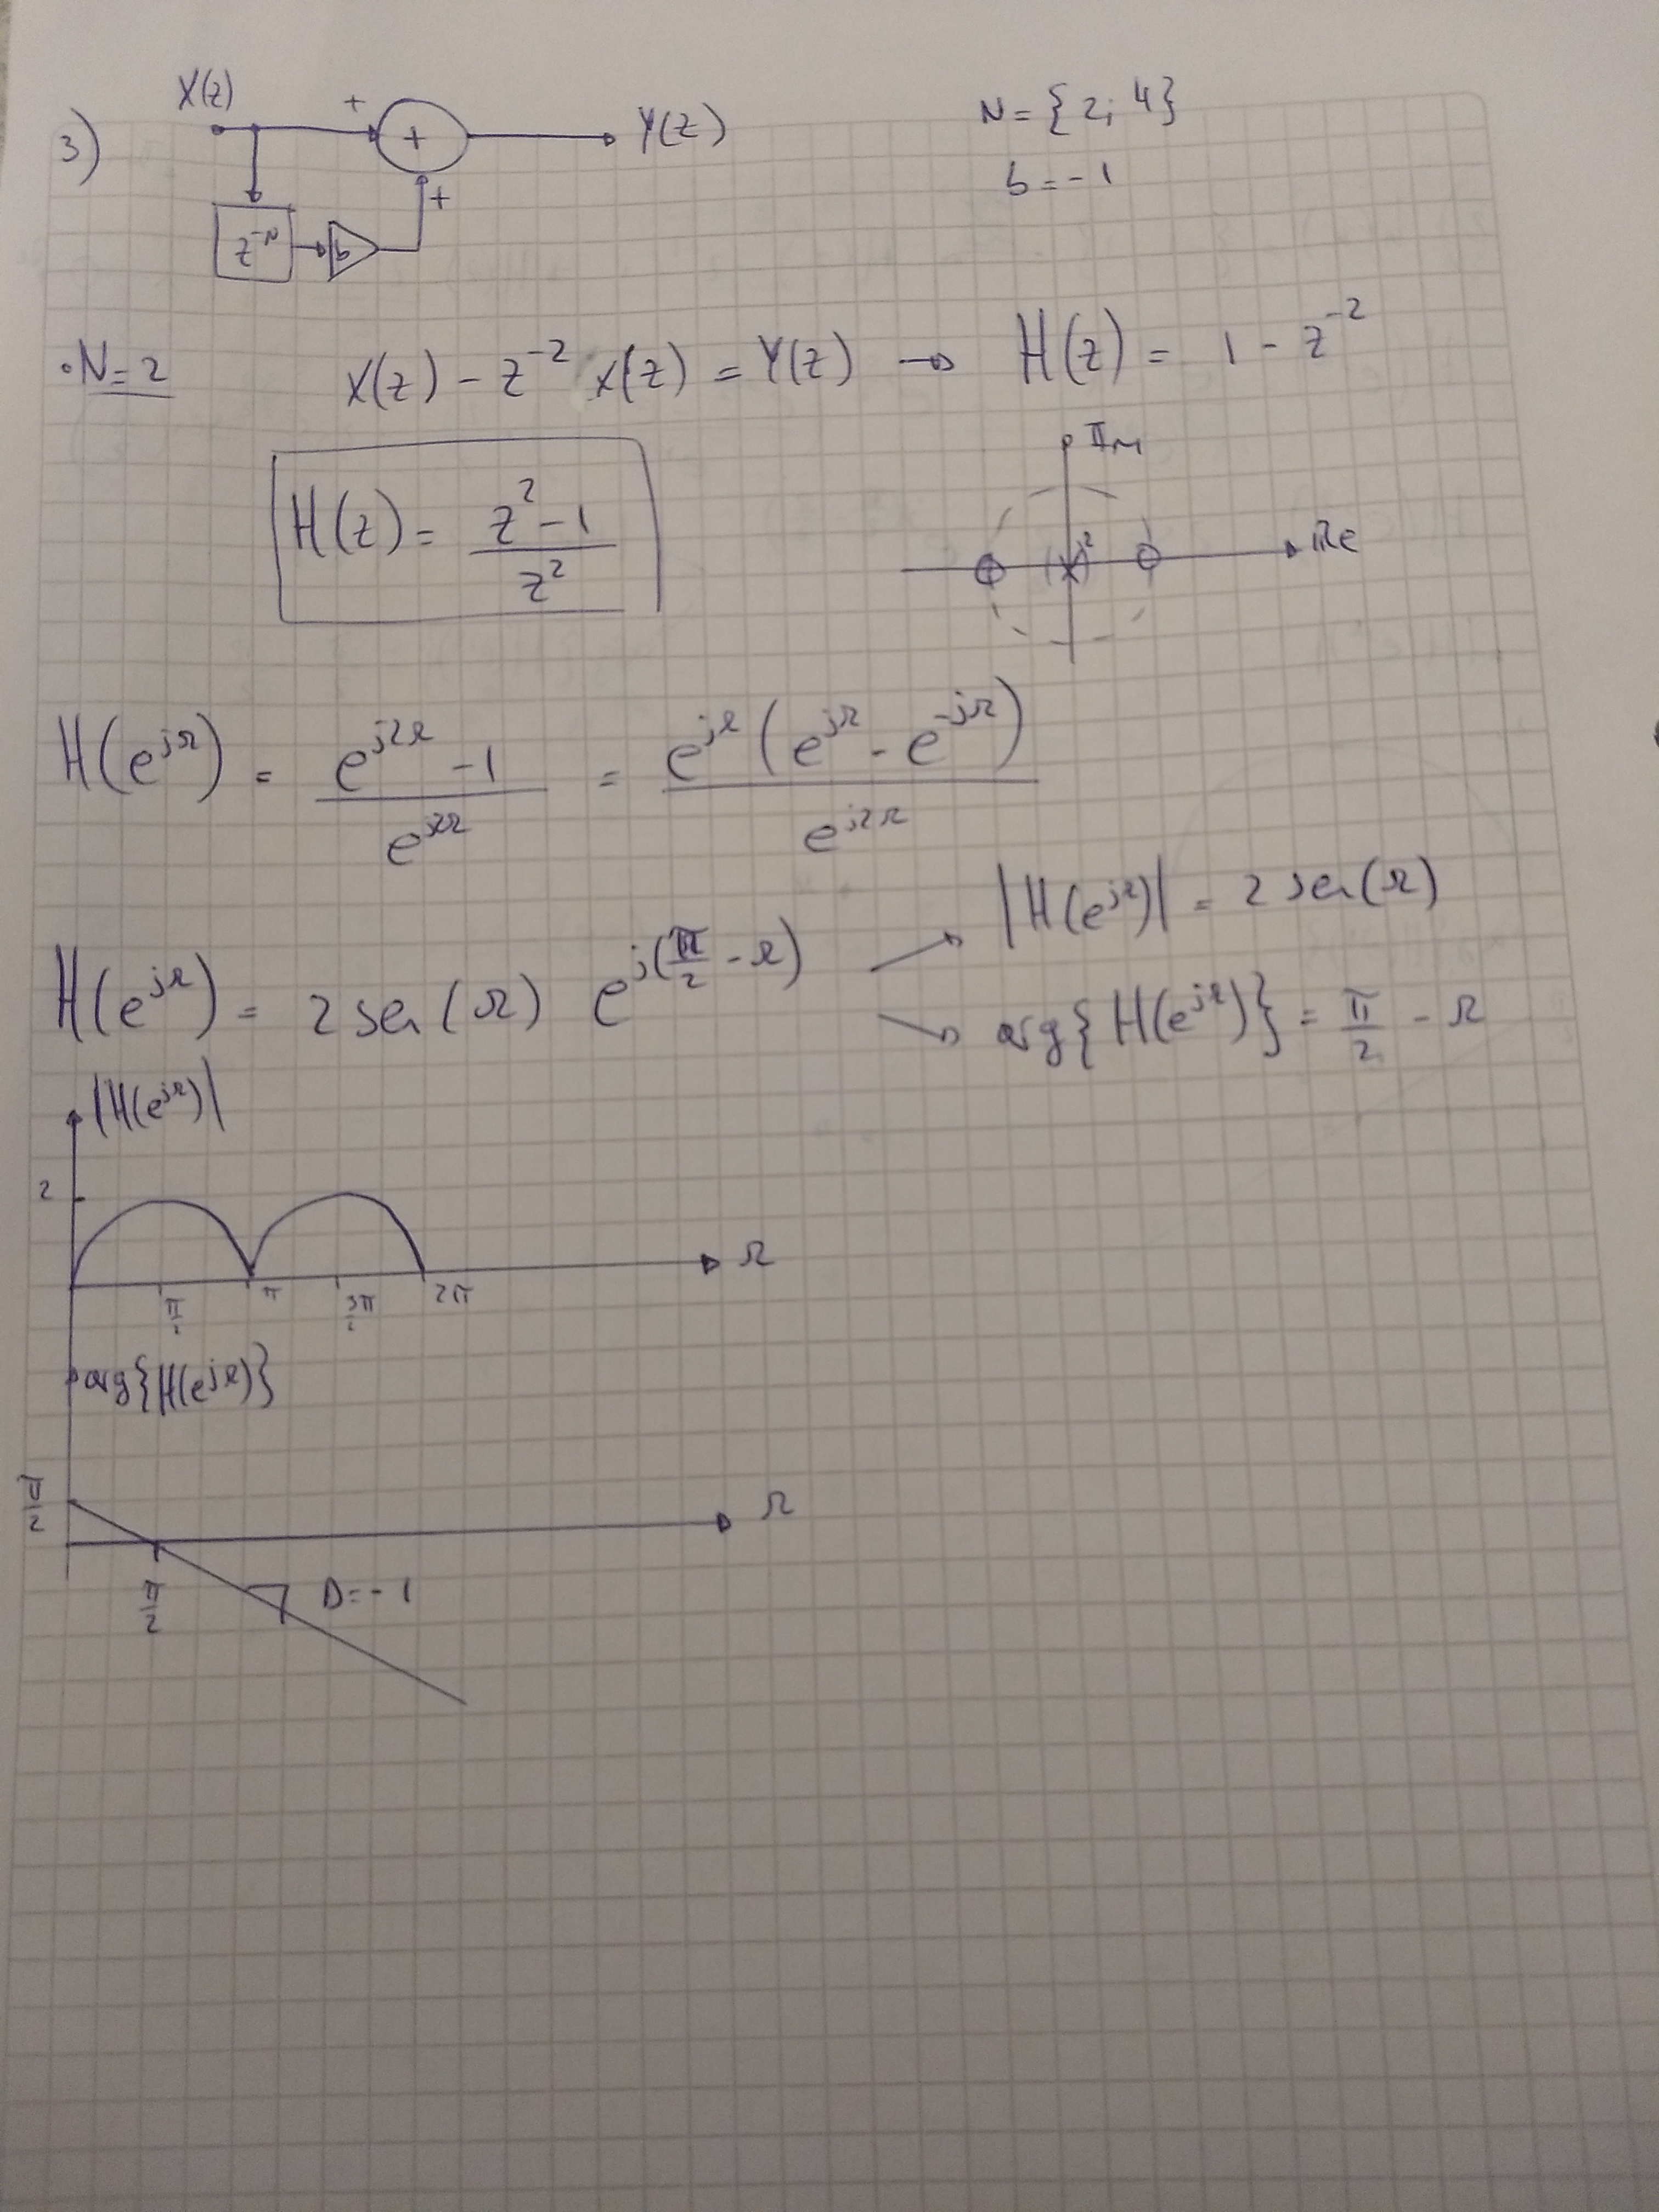 3) X(z) + + Y(Z) N = {2; 4}
+ b = -1
z^-N b
• N = 2 X(z) - z^-2 X(z) = Y(z) → H(z) = 1 - z^-2
Im
H(z) = (z^2 - 1)/z^2
(x)^2 Re
H(e^jΩ) = (e^j2Ω - 1)/e^j2Ω = e^jΩ (e^jΩ - e^-jΩ)/e^j2Ω
|H(e^jΩ)| = 2 sen(Ω)
H(e^jΩ) = 2 sen(Ω) e^j(π/2 - Ω)
arg{H(e^jΩ)} = π/2 - Ω
|H(e^jΩ)|
2
Ω
π/2 π 3π/2 2π
arg{H(e^jΩ)}
π/2 Ω
π/2 D = -1